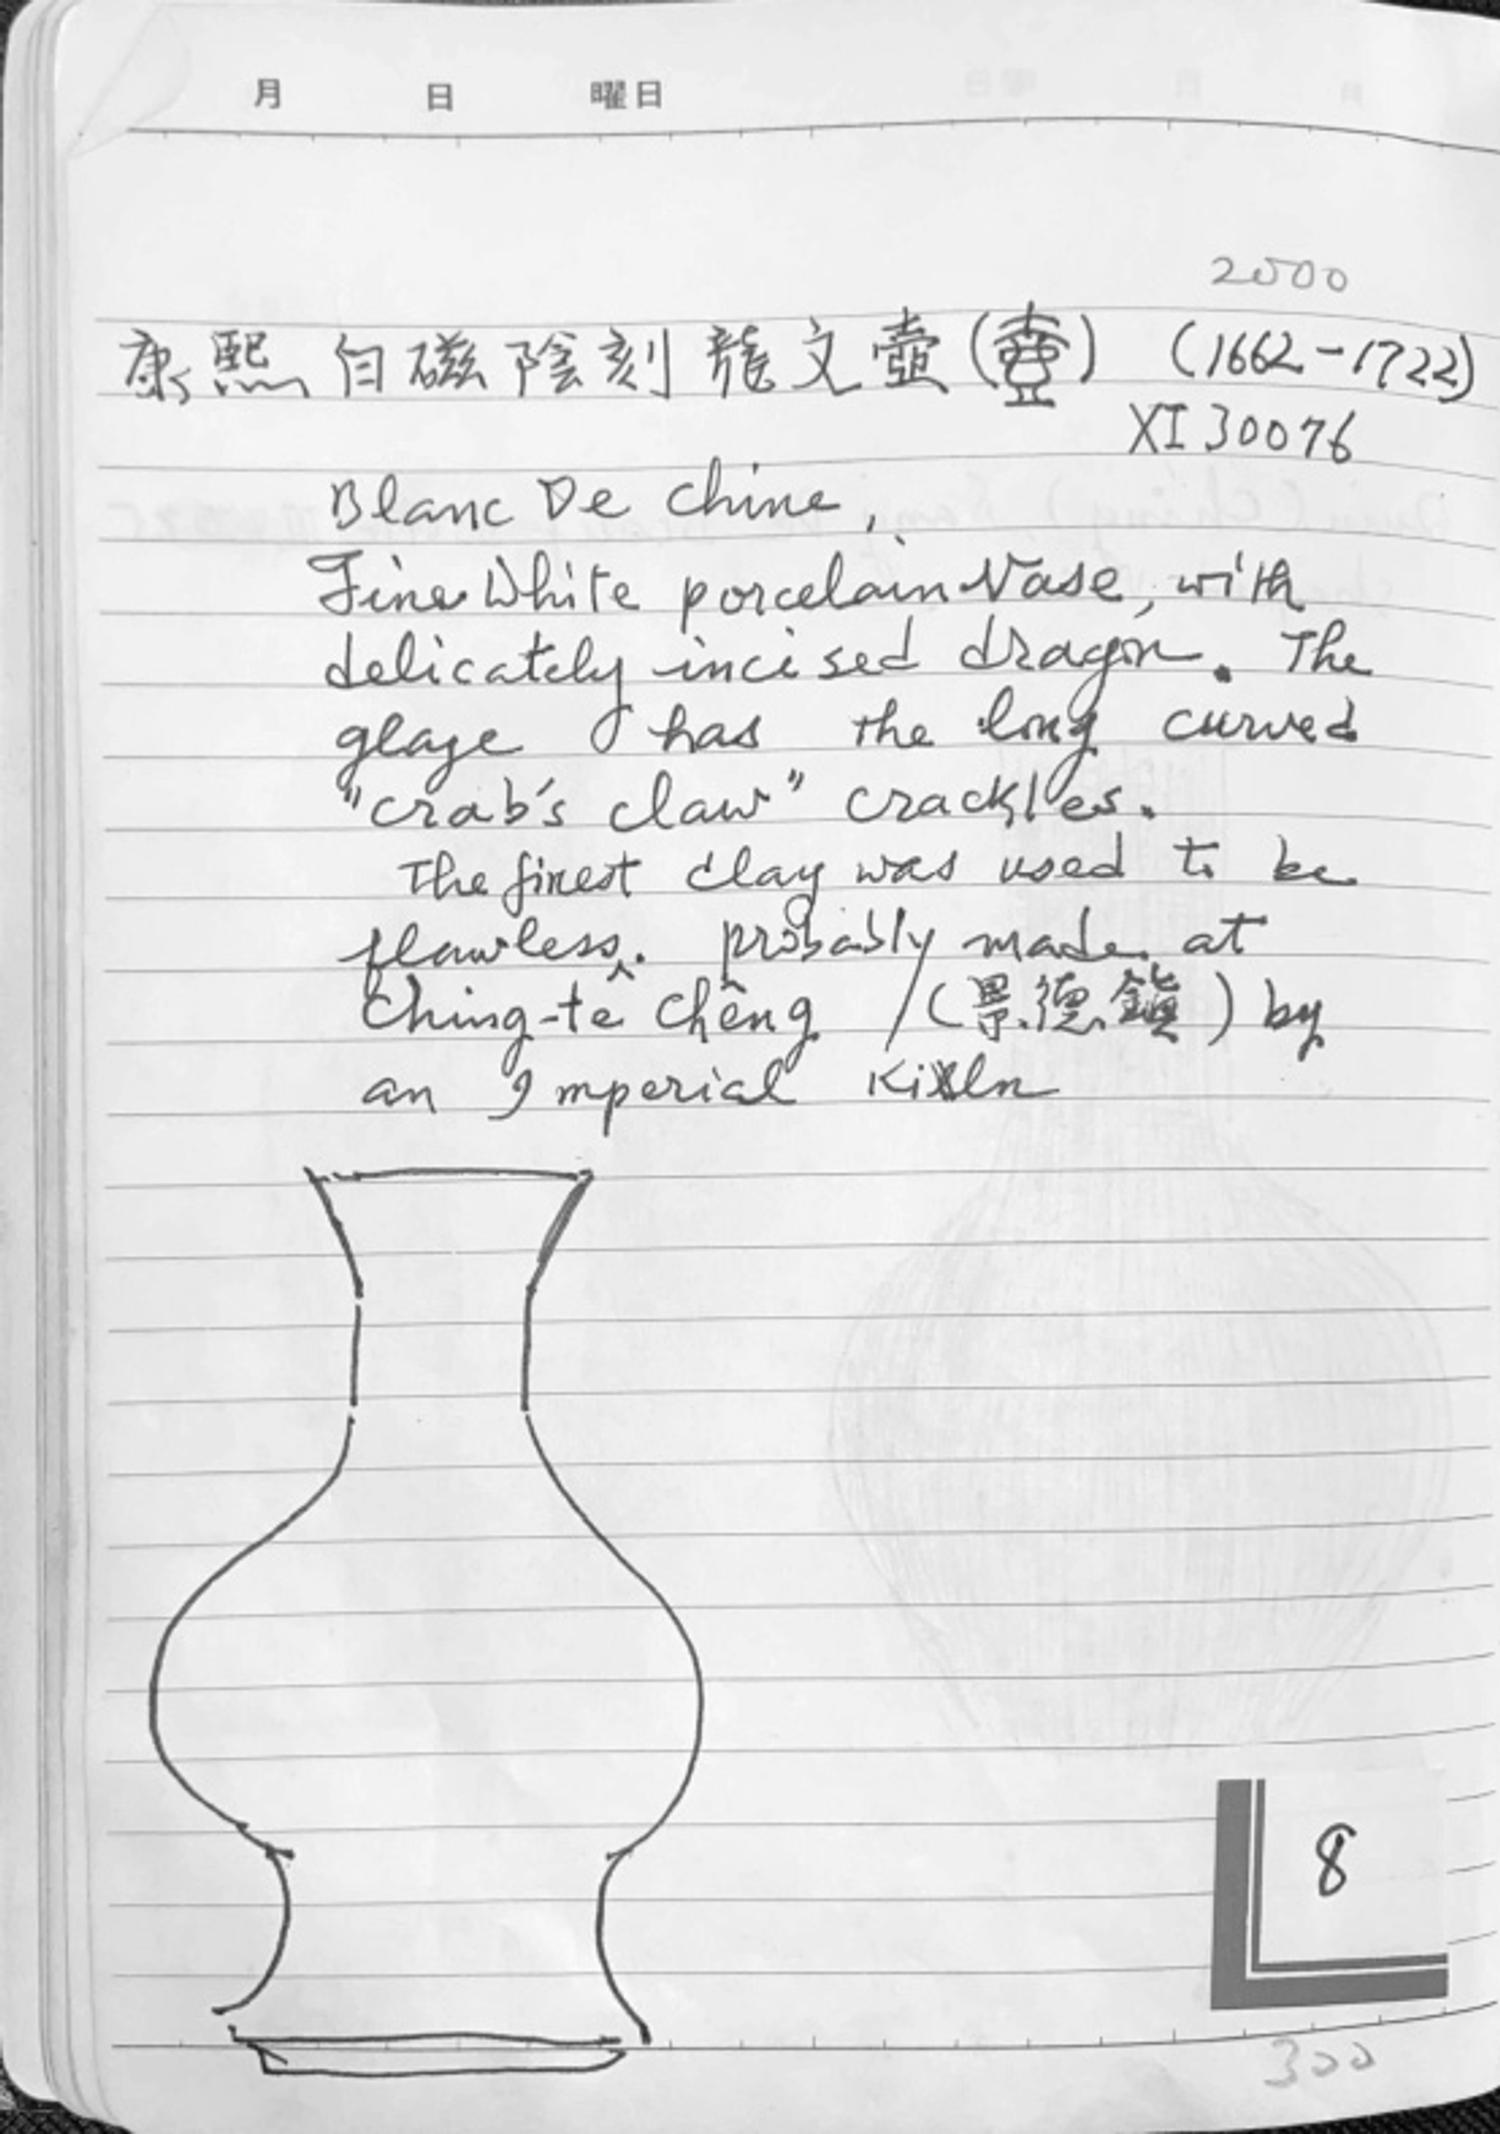 月 日 曜日
2500
康熙白磁陰刻龍文壺(壺) (1662-1722)
XI 30076
Blanc De Chine,
Fine White porcelain Vase, with
delicately incised dragon. The
glaze has the long curved
"crab's claw" crackles.
The finest clay was used to be
flawless. probably made at
Ching-tê Chêng /(景德鎮) by
an Imperial Kiln
8
300